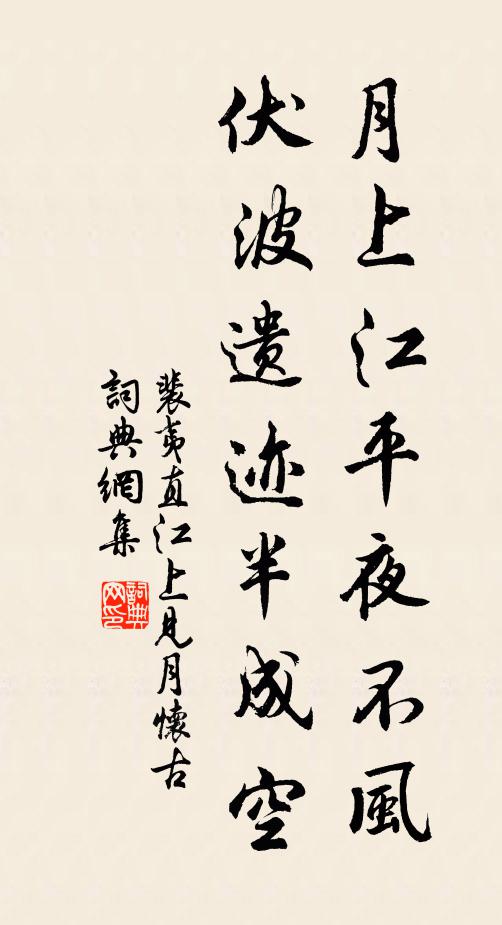 月上江平夜不風
伏波遺迹半成空
裴夷直江上見月懷古
詞典網集
詞典网印